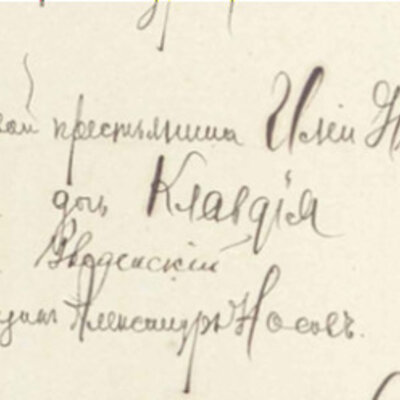 крестьянина Иліи
дочь Клавдія
Введенскій
Александръ Носовъ.